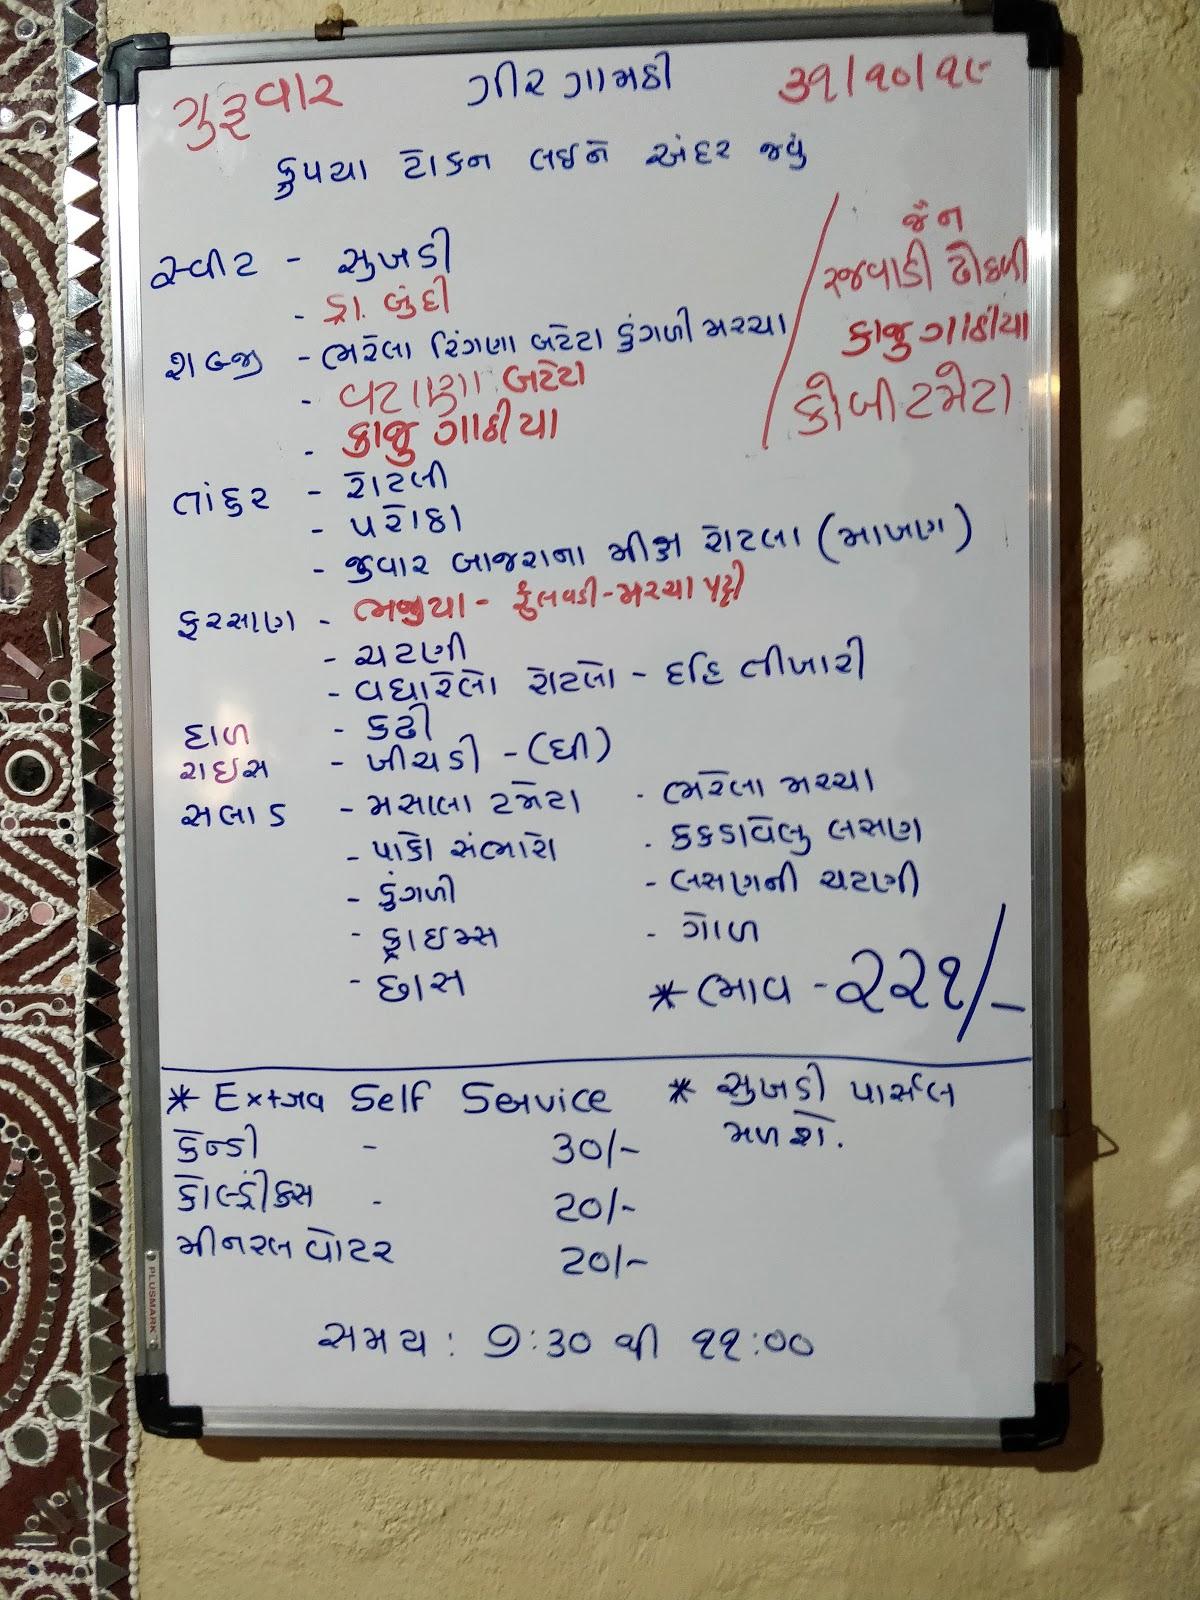 ગુરૂવાર ગીર ગામઠી ૩૧/૧૦/૧૯
કૃપયા ટોકન લઇને અંદર જવું
સ્વીટ - સુખડી
- ડ્રા. બુંદી
શબ્જી - ભરેલા રિંગણા બટેટા ડુંગળી મરચા
- વટાણા બટેટા
- કાજુ ગાઠીયા
જૈન
રજવાડી ઢોકળી
કાજુ ગાઠીયા
કોબીટમેટા
તાંદુર - રોટલી
- પરોઠા
- જુવાર બાજરાના મીક્ષ રોટલા (માખણ)
ફરસાણ - ભજીયા - ફુલવડી - મરચા પટ્ટી
- ચટણી
- વઘારેલો રોટલો - દહિ તીખારી
દાળ - કઢી
રાઇસ - ખીચડી - (ઘી)
સલાડ - મસાલા ટમેટા - ભરેલા મરચા
- પાકો સંભારો - કકડાવેલુ લસણ
- ડુંગળી - લસણની ચટણી
- ફ્રાઇમ્સ - ગોળ
- છાસ * ભાવ - ૨૨૧/-
* Extra Self Service * સુખડી પાર્સલ
મળશે.
કેન્ડી - 30/-
કોલ્ડ્રીંકસ - 20/-
મીનરલ વોટર 20/-
સમય : ૭:૩૦ થી ૧૧:૦૦
PLUSMARK